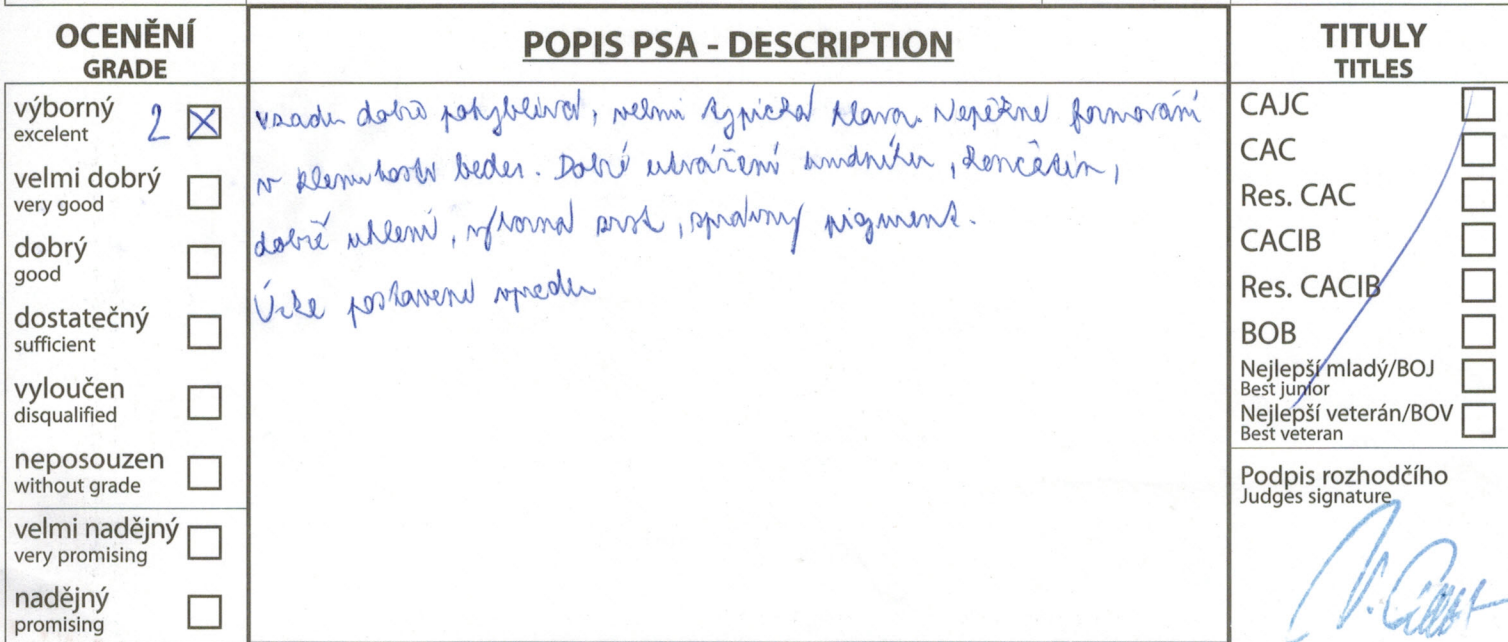 OCENĚNÍ
GRADE
výborný
excelent
2
velmi dobrý
very good
dobrý
good
dostatečný
sufficient
vyloučen
disqualified
neposouzen
without grade
velmi nadějný
very promising
nadějný
promising
POPIS PSA - DESCRIPTION
vzadu dobře pohyblivá, velmi typická hlava. Nepěkné formování
v klenutosti beder. Dobré utváření hrudníku, končetin,
dobré úhlení, výborná srst, správný pigment.
Úzce postavená vpředu
TITULY
TITLES
CAJC
CAC
Res. CAC
CACIB
Res. CACIB
BOB
Nejlepší mladý/BOJ
Best junior
Nejlepší veterán/BOV
Best veteran
Podpis rozhodčího
Judges signature